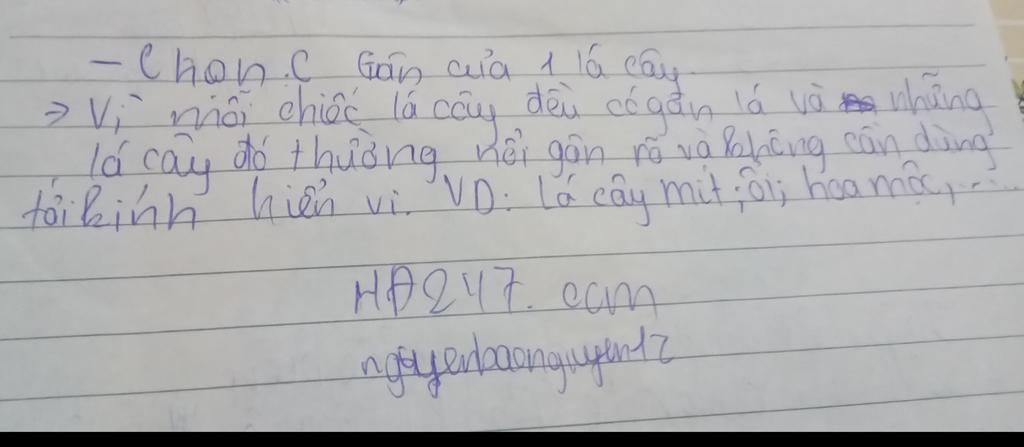 - Chọn.C Gân của 1 lá cây
=> Vì mỗi chiếc lá cây đều có gân lá và những
lá cây đó thường nổi gân rõ và không cần dùng
tới kính hiển vi. VD: lá cây mít; ổi; hoa mộc,...
HĐ247.com
nguyenbaonguyen12